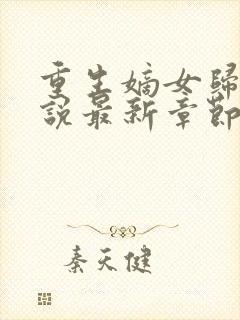 重生嫡女歸
說最新章節
秦天健